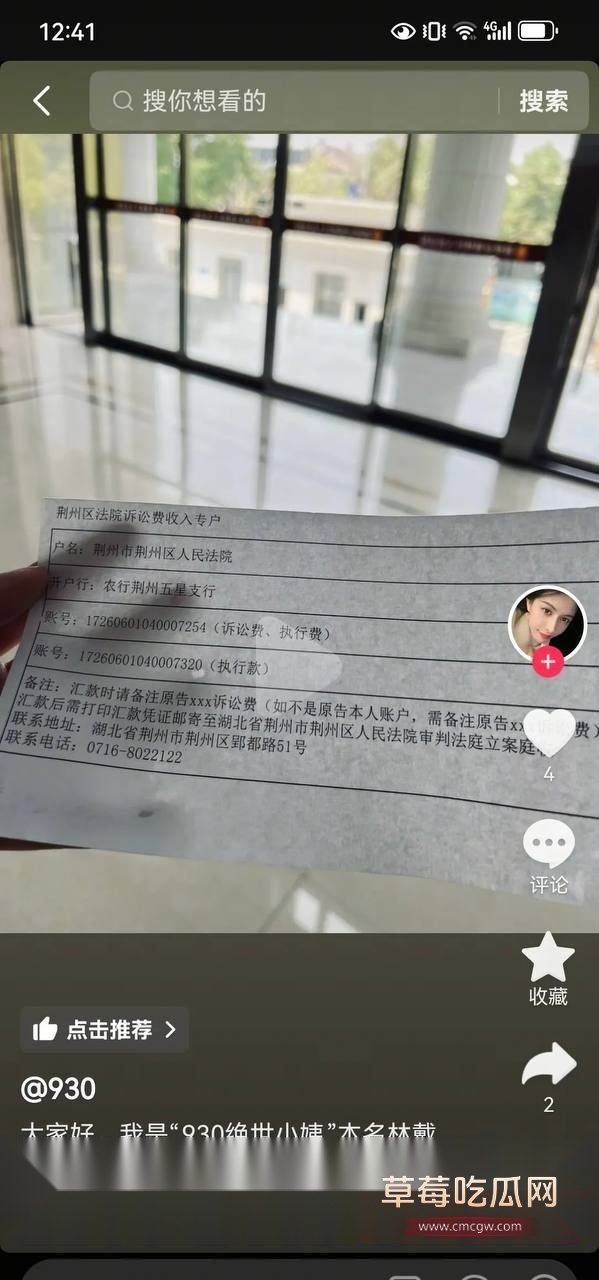 12:41
4G
搜你想看的
搜索
荆州区法院诉讼费收入专户
户名：荆州市荆州区人民法院
开户行：农行荆州五星支行
账号：17260601040007254（诉讼费、执行费）
账号：17260601040007320（执行款）
备注：汇款时请备注原告xxx诉讼费（如不是原告本人账户，需备注原告xx诉讼费）
汇款后需打印汇款凭证邮寄至湖北省荆州市荆州区人民法院审判法庭立案庭
联系地址：湖北省荆州市荆州区郢都路51号
联系电话：0716-8022122
4
评论
收藏
2
点击推荐
@930
大家好，我是“930绝世小姨”本名林戴
草莓吃瓜网
www.cmcgw.com